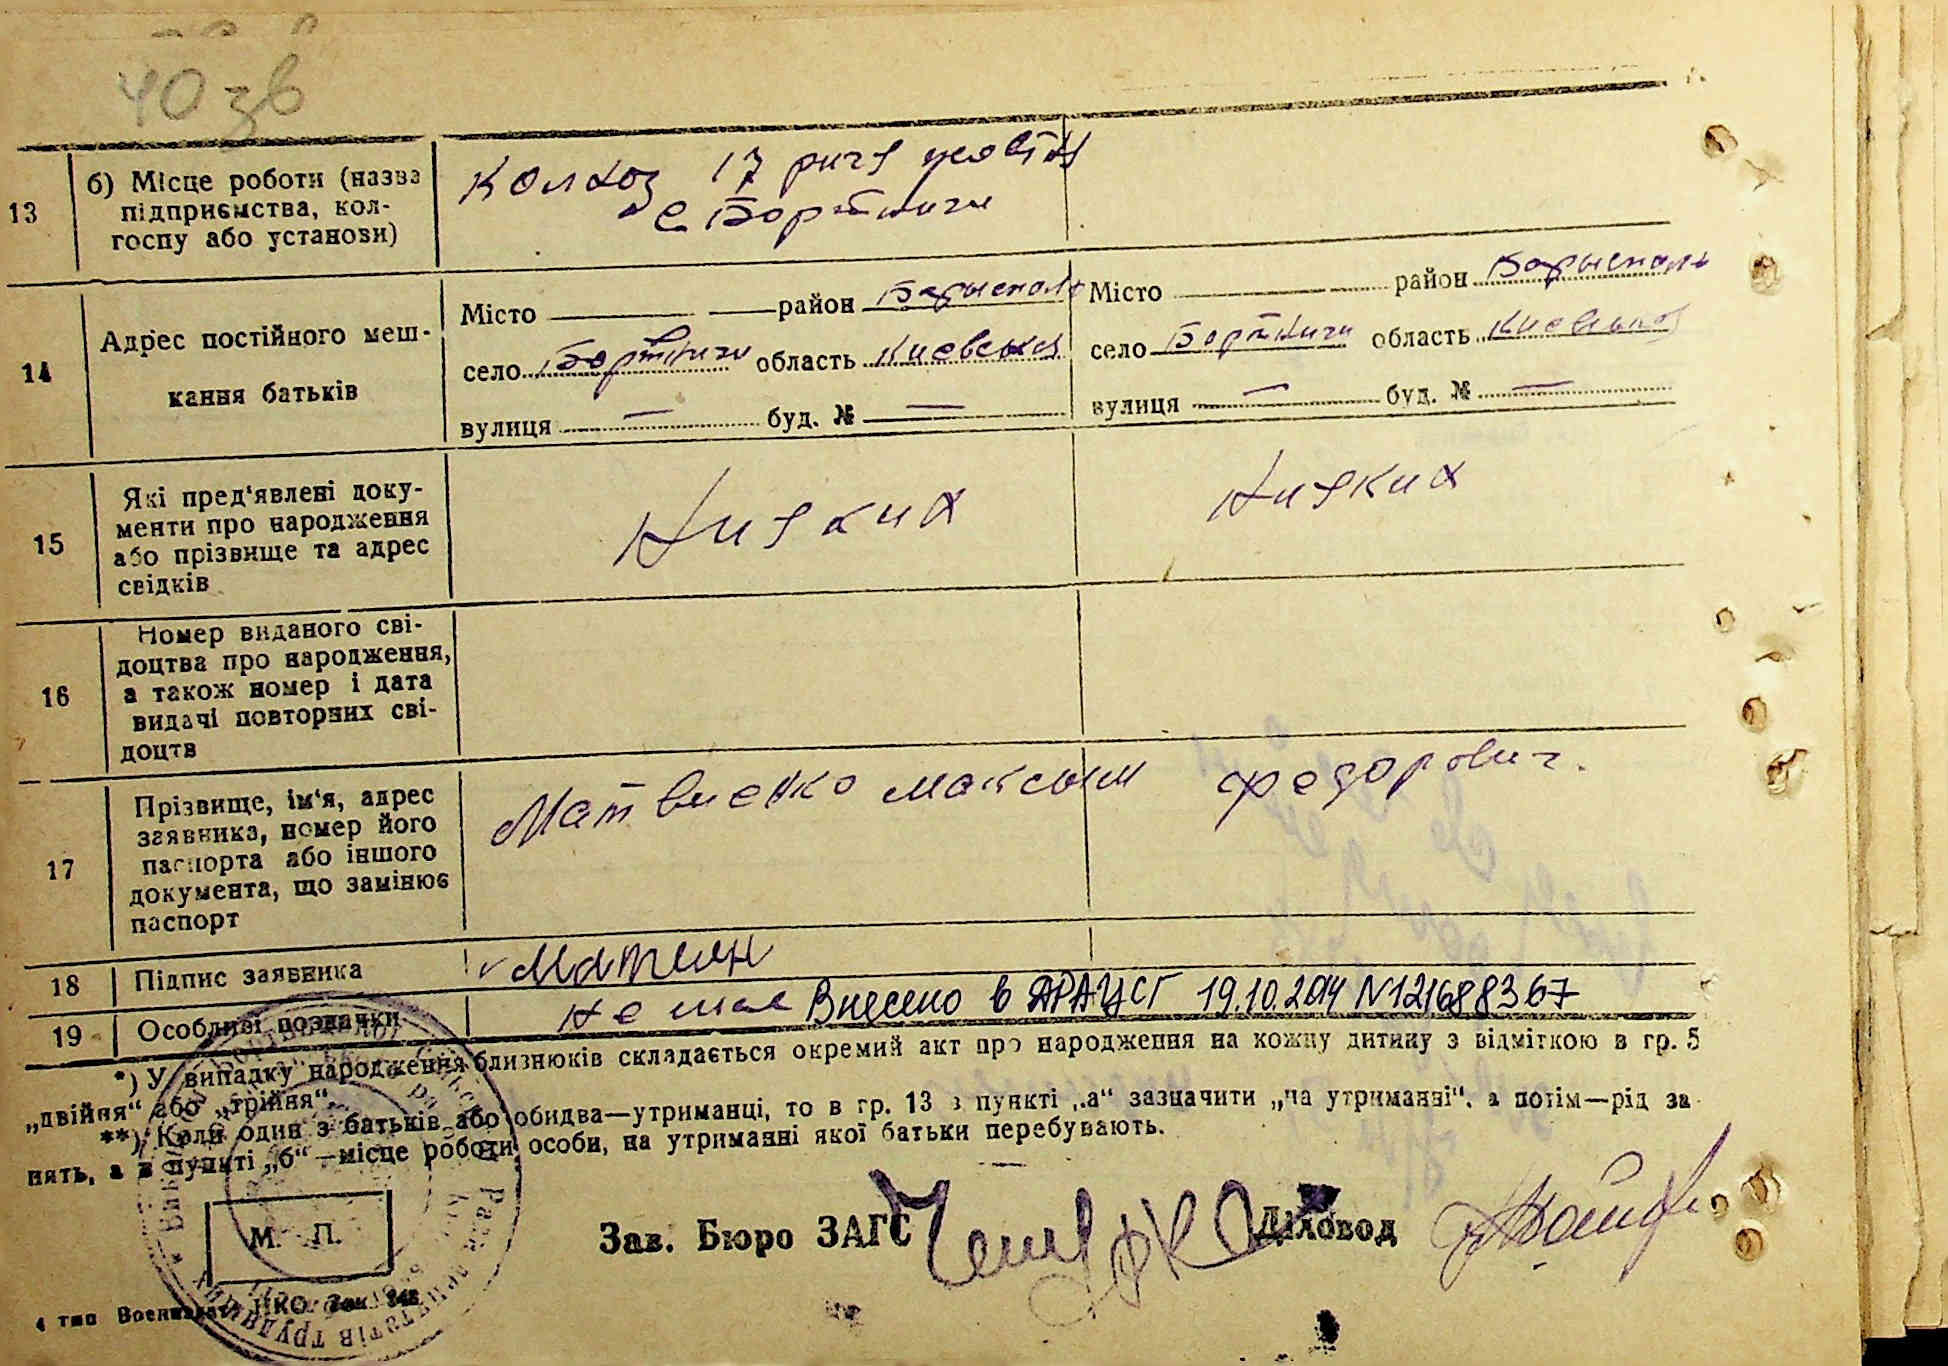 40 зв
13
б) Місце роботи (назва
підприємства, кол-
госпу або установи)
Колхоз 17 ричя
с Бортничи
14
Адрес постійного меш-
кання батьків
Місто район Барысполь
село Бортничи область Киевська
вулиця — буд. № —
Місто район Барысполь
село Бортничи область Киевська
вулиця — буд. № —
15
Які пред'явлені доку-
менти про народження
або прізвище та адрес
свідків
Нияких
Нияких
16
Номер виданого сві-
доцтва про народження,
а також номер і дата
видачі повторних сві-
доцтв
17
Прізвище, ім'я, адрес
заявника, номер його
паспорта або іншого
документа, що замінює
паспорт
Матвиенко Максым Федорович.
18
Підпис заявника
19
Особливі позначки
не має Внесено в ДРАЦСГ 19.10.2014 N121688367
*) У випадку народження близнюків складається окремий акт про народження на кожну дитину з відміткою в гр. 5
„двійня“ або „трійня“.
**) Коли один з батьків або обидва—утриманці, то в гр. 13 в пункті „а“ зазначити „на утриманні“, а потім—рід за-
нять, а в пункті „б“—місце роботи особи, на утриманні якої батьки перебувають.
М. П.
Зав. Бюро ЗАГС
Діловод
4 тип Воениздата НКО. Зак. 348